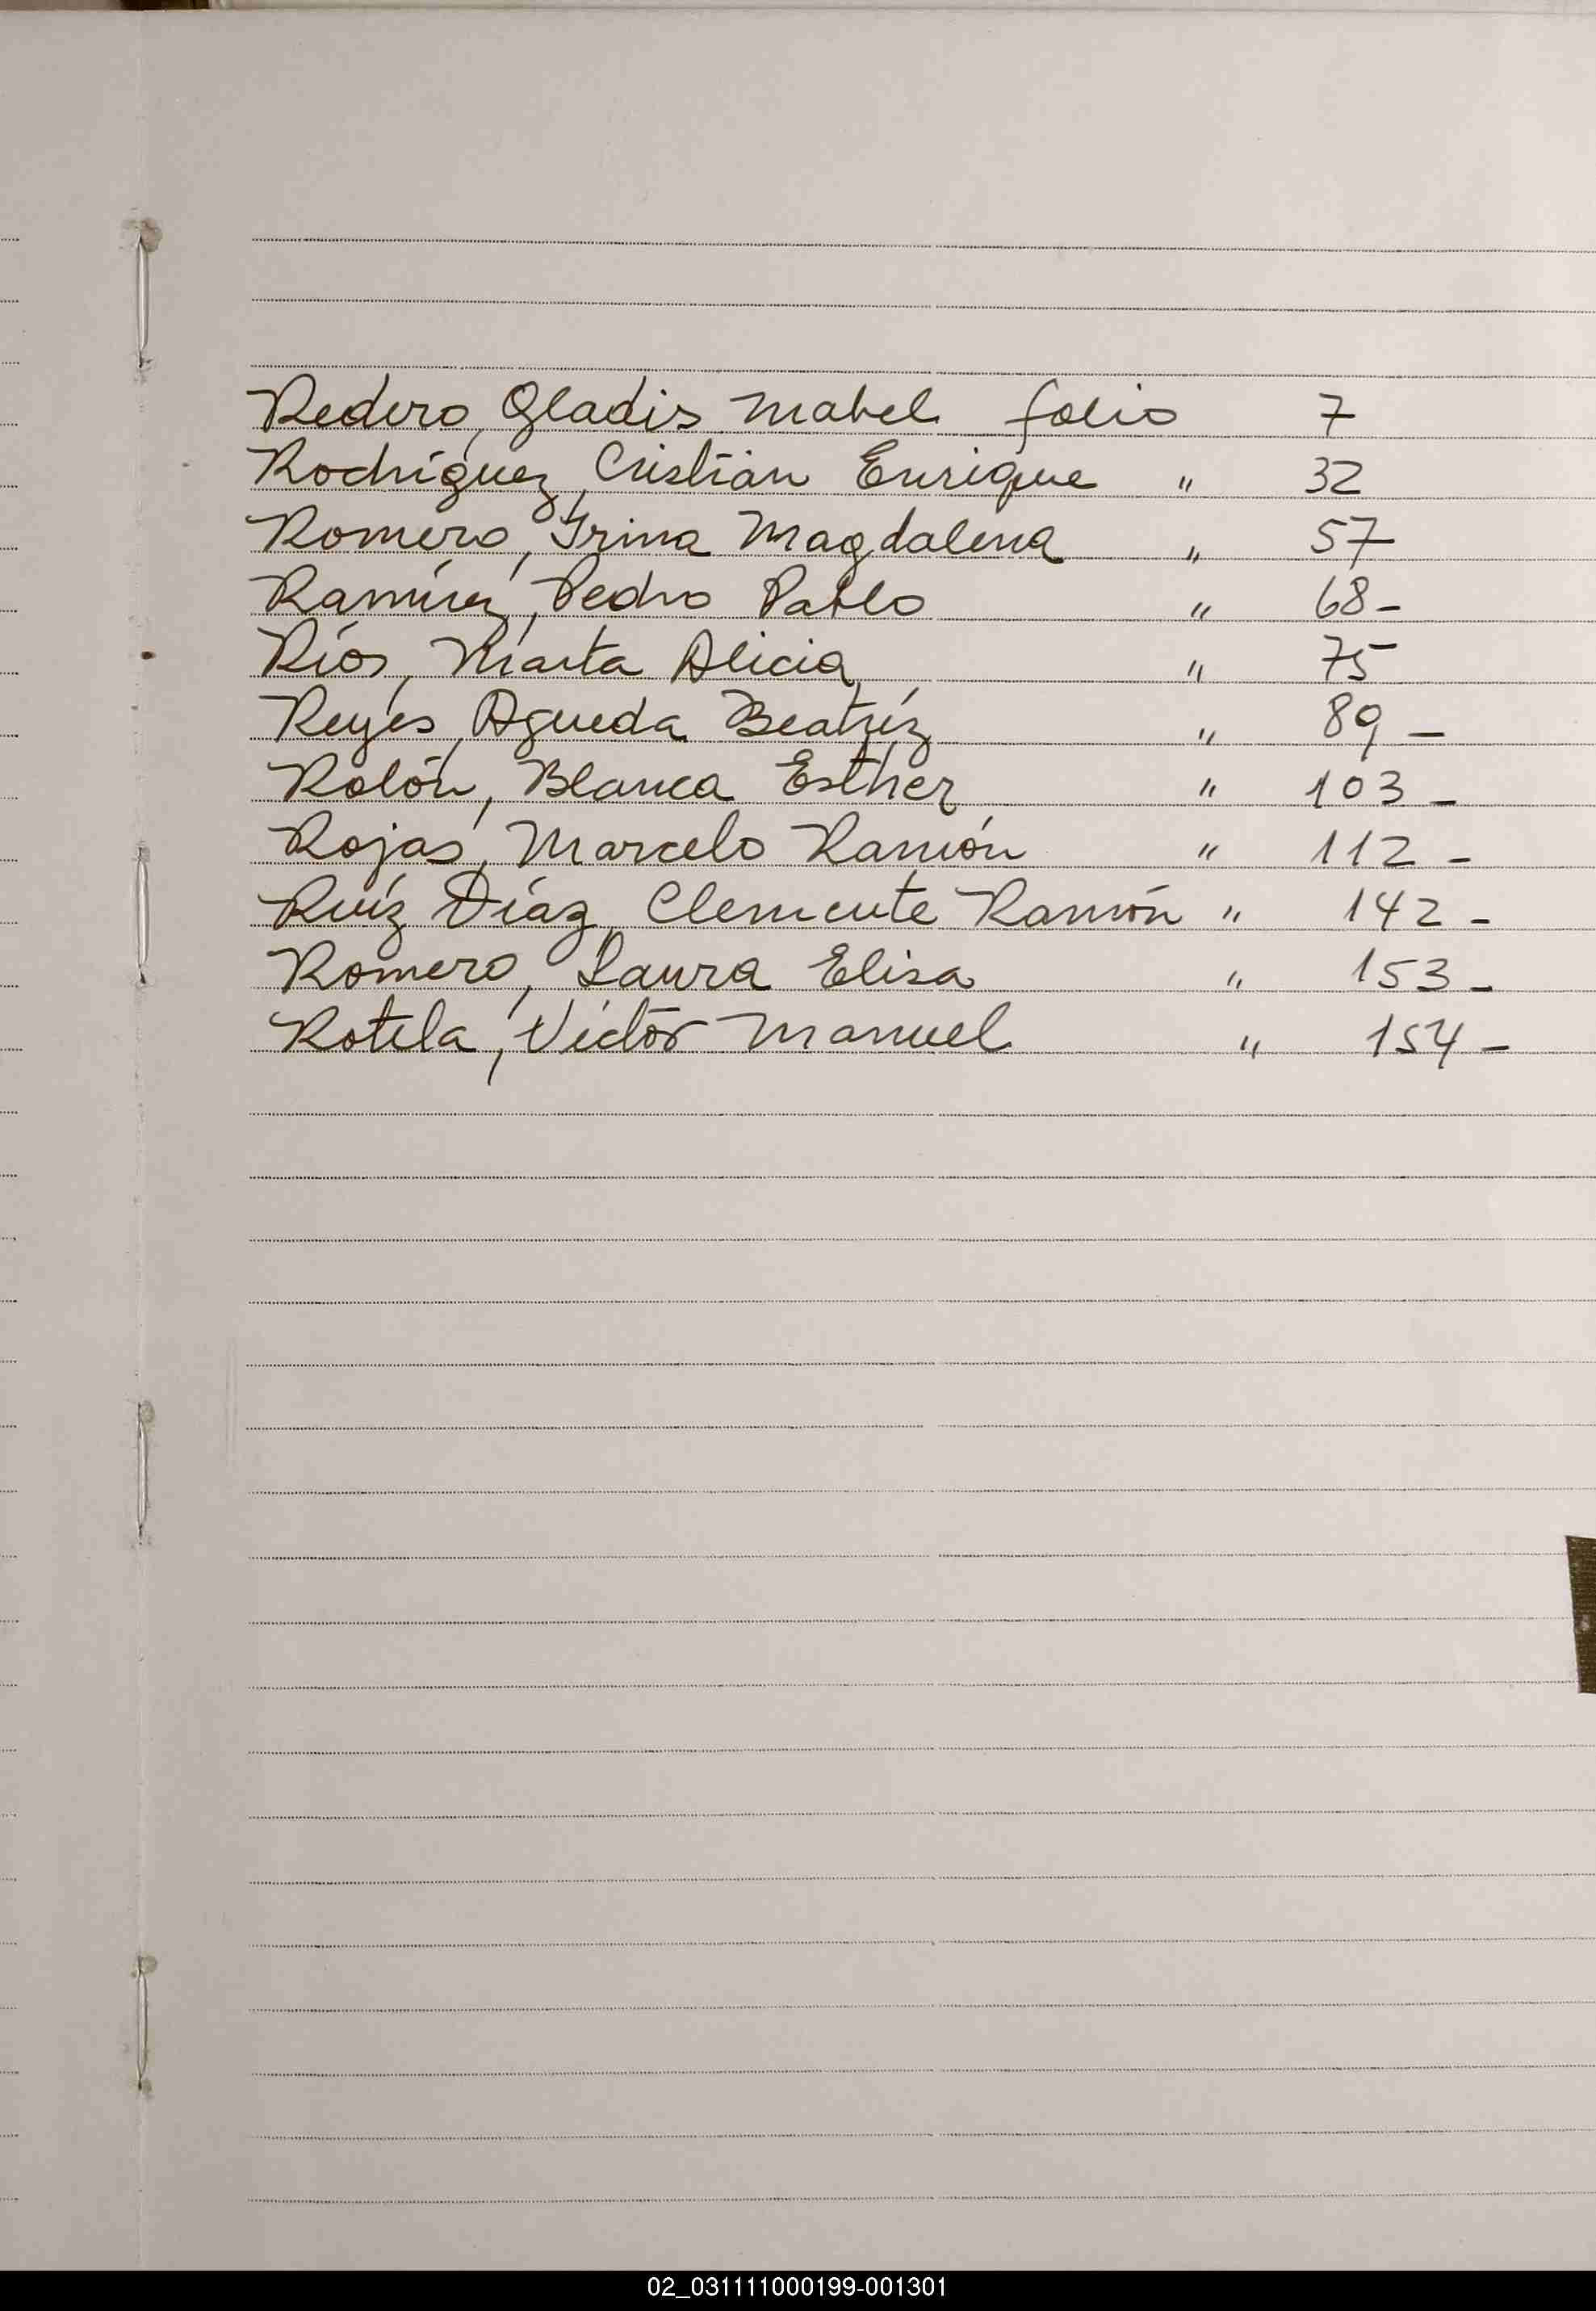 Redero, Gladis Mabel folio 7
Rodríguez, Cristián Enrique " 32
Romero, Irina Magdalena " 57
Ramírez, Pedro Pablo " 68-
Ríos, Marta Alicia " 75
Reyes, Agueda Beatríz " 89-
Rolón, Blanca Esther " 103-
Rojas, Marcelo Ramón " 112-
Ruíz Díaz, Clemente Ramón " 142-
Romero, Laura Elisa " 153-
Rotela, Víctor Manuel " 154-
02_031111000199-001301